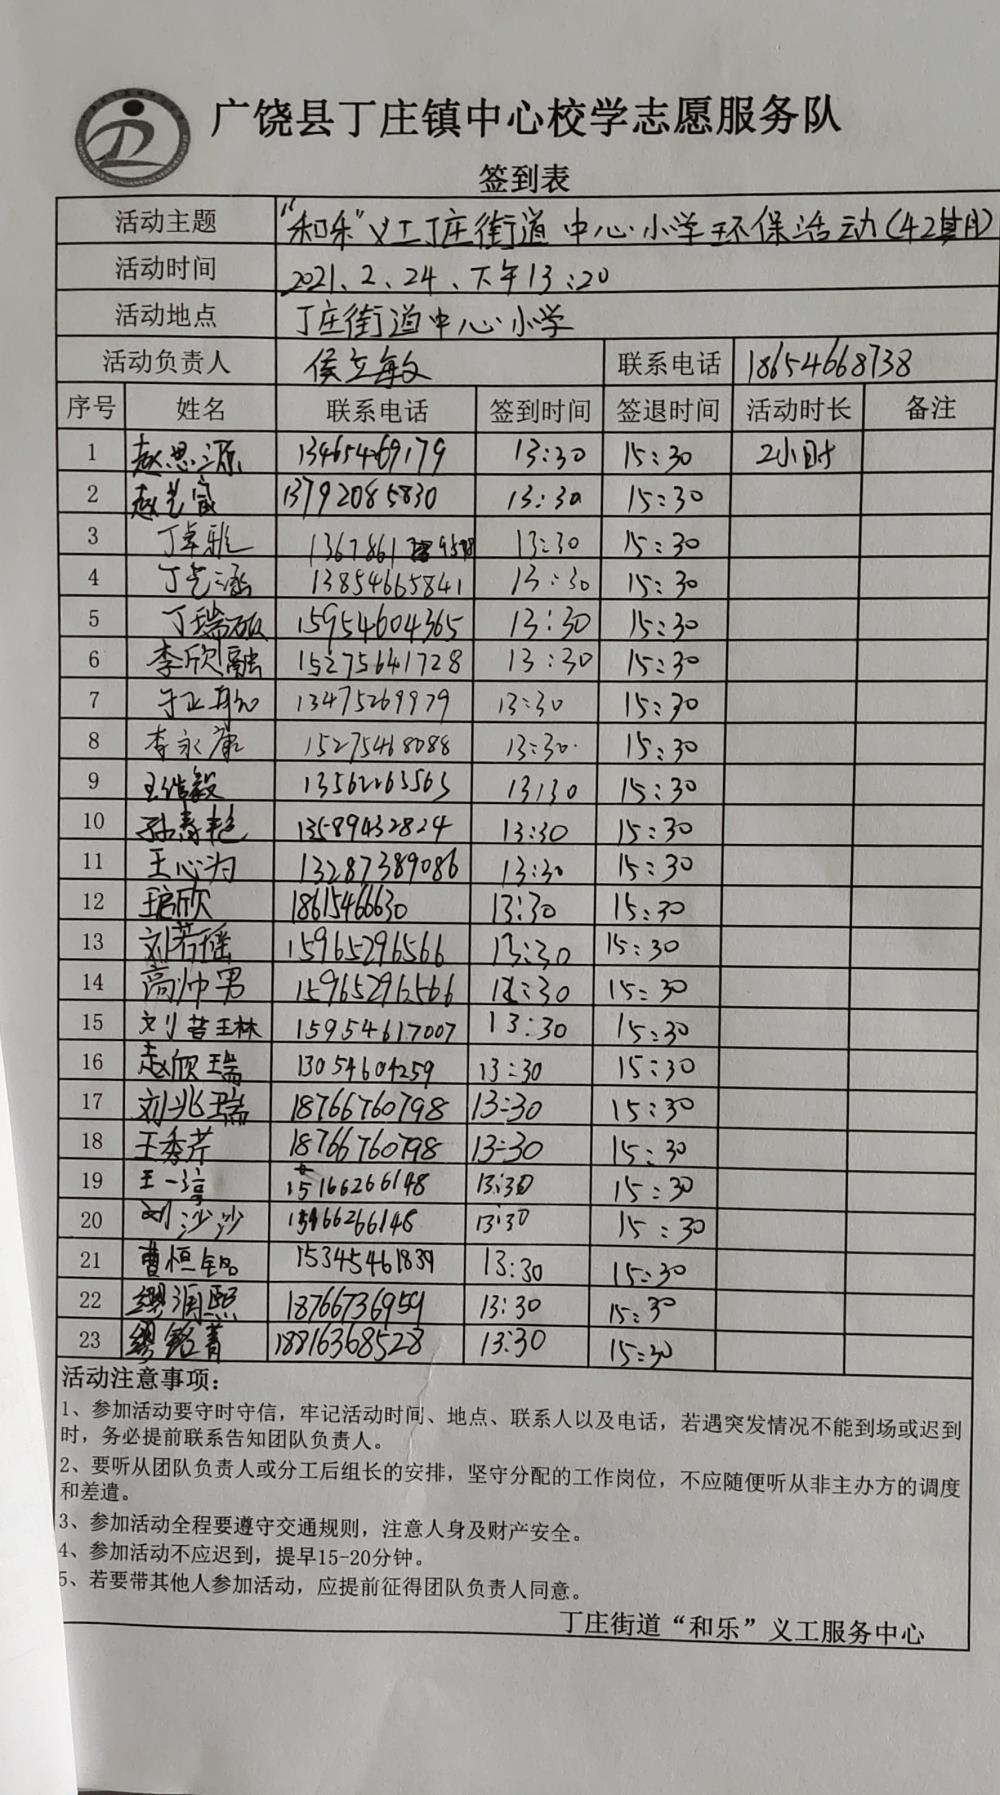 广饶县丁庄镇中心校学志愿服务队
签到表
活动主题 “和乐”义工丁庄街道中心小学环保活动(42期)
活动时间 2021、2、24、下午13:20
活动地点 丁庄街道中心小学
活动负责人 侯立敏 联系电话 18654668738
序号 姓名 联系电话 签到时间 签退时间 活动时长 备注
1 赵思源 13465469179 13:30 15:30 2小时
2 赵艺宸 13792085830 13:30 15:30
3 丁卓雅 13:30 15:30
4 丁艺涵 13854665841 13:30 15:30
5 丁瑞硕 15954604365 13:30 15:30
6 李欣融 15275641728 13:30 15:30
7 13475269979 13:30 15:30
8 李永康 15275468088 13:30. 15:30
9 王浩毅 13562263565 13:30 15:30
10 孙春艳 13589432824 13:30 15:30
11 王心为 13287389086 13:30 15:30
12 1861546663 0 13:30 15:30
13 刘芳瑶 15965296566 13:30 15:30
14 高帅男 15965296566 13:30 15:30
15 刘昔琳 15954617007 13:30 15:30
16 赵欣瑞 13054604259 13:30 15:30
17 刘兆瑞 18766760798 13:30 15:30
18 王秀芹 18766760798 13:30 15:30
19 王一淳 15166266148 13:30 15:30
20 刘沙沙 15166266148 13:30 15:30
21 曹恒铭 15345461839 13:30 15:30
22 缪润熙 18766736959 13:30 15:30
23 缪铭菁 18816368528 13:30 15:30
活动注意事项：
1、参加活动要守时守信，牢记活动时间、地点、联系人以及电话，若遇突发情况不能到场或迟到
时，务必提前联系告知团队负责人。
2、要听从团队负责人或分工后组长的安排，坚守分配的工作岗位，不应随便听从非主办方的调度
和差遣。
3、参加活动全程要遵守交通规则，注意人身及财产安全。
4、参加活动不应迟到，提早15-20分钟。
5、若要带其他人参加活动，应提前征得团队负责人同意。
丁庄街道“和乐”义工服务中心